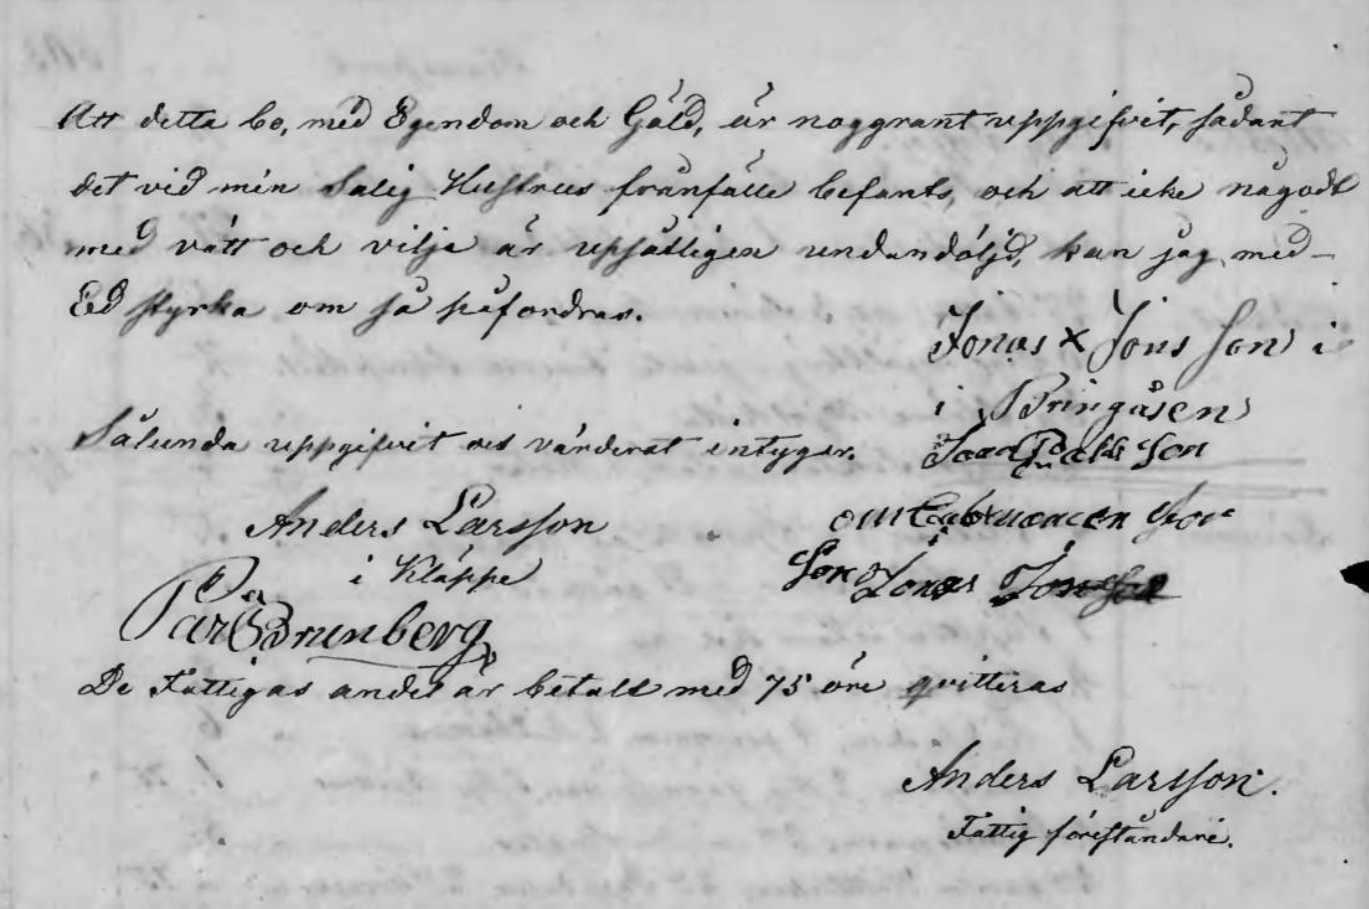 Att detta bo, med Egendom och Gäld, är noggrant uppgifvit, sådant
det vid min Salig Hustrus frånfälle befants, och att icke någodt
med vått och vilja är upsåtligen undandöljd, kan jag med
Ed styrka om så påfordras.
Jonas X Jons Son i
i Bringåsen
Sålunda uppgifvit och värderat intyger.
Son
Anders Larsson
i Kläppe
för
Son Jonas Jonsson
Pär Brunberg
De Fattigas andel är betalt med 75 öre qvitteras
Anders Larsson.
Fattig föreståndare.